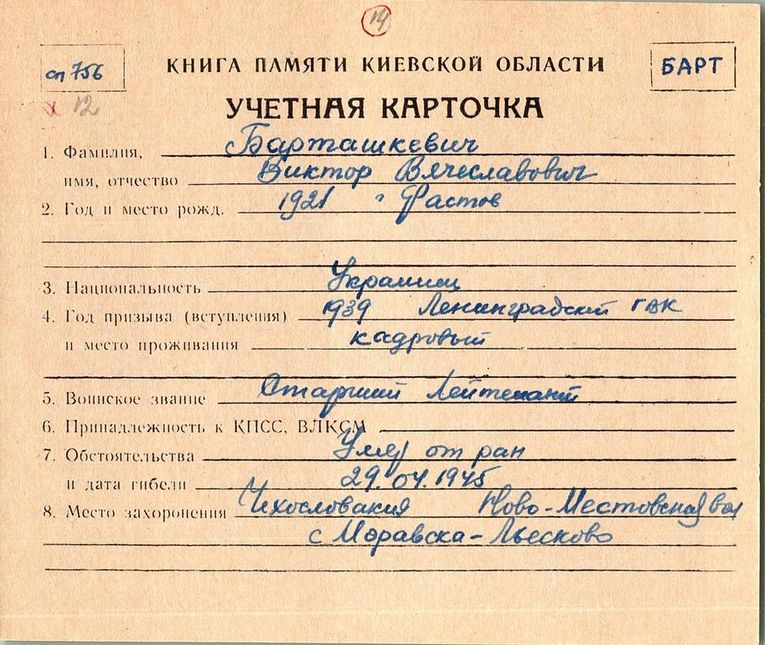 14
оп 756
КНИГА ПАМЯТИ КИЕВСКОЙ ОБЛАСТИ
БАРТ
12
УЧЕТНАЯ КАРТОЧКА
1. Фамилия, Барташкевич
имя, отчество Виктор Вячеславович
2. Год и место рожд. 1921 г Фастов
3. Национальность Украинец
4. Год призыва (вступления) 1939 Ленинградский ГВК
и место проживания кадровый
5. Воинское звание Старший Лейтенант
6. Принадлежность к КПСС, ВЛКСМ
7. Обстоятельства Умер от ран
и дата гибели 29.04.1945
8. Место захоронения Чехословакия Ново-Местовская вол
с Моравска-Льесково